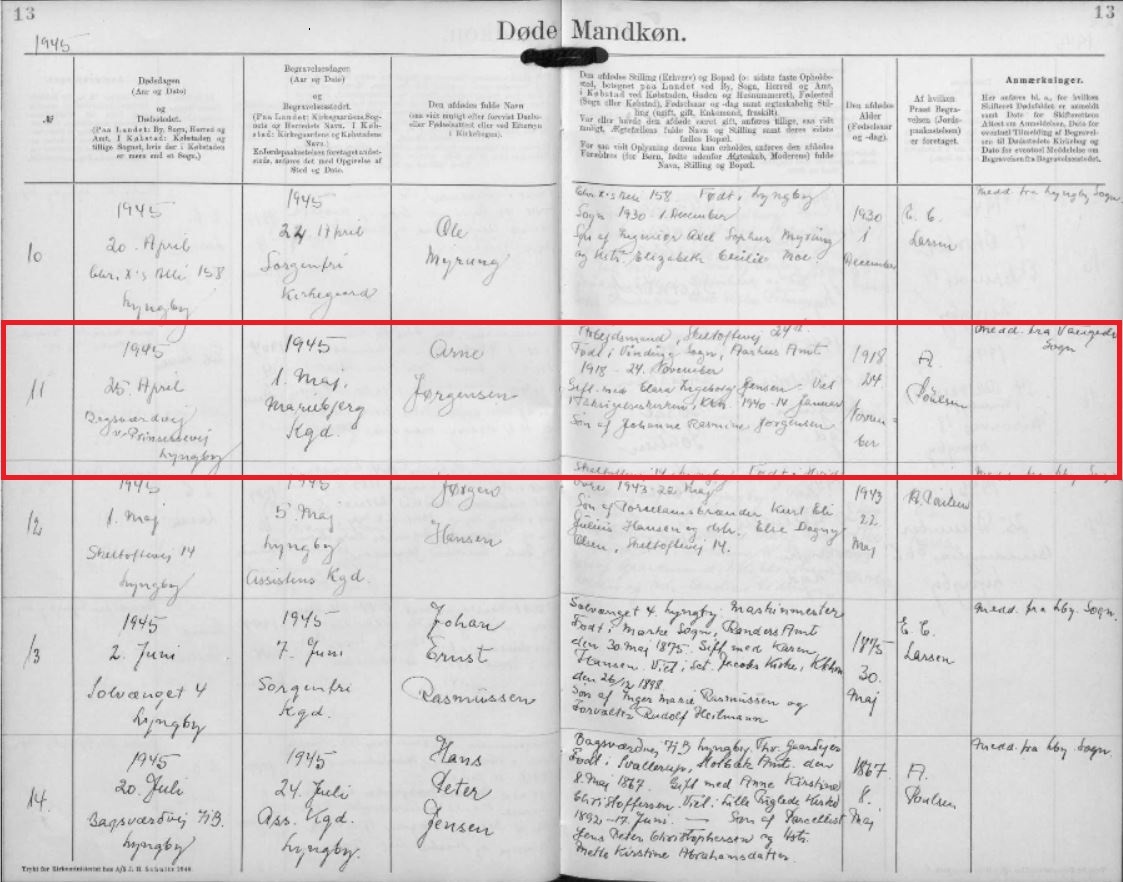 13
13
1945
Døde Mandkøn.
№
Dødsdagen
(Aar og Dato)
og
Dødsstedet.
(Paa Landet: By, Sogn, Herred og
Amt. I København: Købstaden og
tillige Sognet, hvis der i Købstaden
er mere end et Sogn.)
Begravelsesdagen
(Aar og Dato)
og
Begravelsesstedet.
(Paa Landet: Kirkegaardens Sog-
nets og Herredets Navn. I Køb-
stad: Kirkegaardens og Købstadens
Navn.)
Er Jordpaakastelsen foretaget andet-
steds, anføres det med Opgivelse af
Sted og Dato.
Den afdødes fulde Navn
(om vist muligt efter forevist Daabs-
eller Fødselsattest eller ved Eftersyn
i Kirkebogen).
Den afdødes Stilling (Erhverv) og Bopæl (o: sidste faste Opholds-
sted, betegnet paa Landet ved By, Sogn, Herred og Amt,
i Købstad ved Købstaden, Gaden og Husnummeret), Fødested
(Sogn eller Købstad), Fødselsaar og -dag samt ægteskabelig Stil-
ling (ugift, gift, Enkemand, fraskilt).
Var eller havde den afdøde været gift, anføres tillige, saa vidt
muligt, Ægtefællens fulde Navn og Stilling samt deres sidste
fælles Bopæl.
For saa vidt Oplysning derom kan erholdes, anføres den afdødes
Forældres (for Børn, fødte udenfor Ægteskab, Moderens) fulde
Navn, Stilling og Bopæl.
Den afdødes
Alder
(Fødselsaar
og -dag).
Af hvilken
Præst Begra-
velsen (Jords-
paakastelsen)
er foretaget.
Anmærkninger.
Her anføres bl. a., for hvilken
Skifteret Dødsfaldet er anmeldt
samt Dato for Skifterettens
Attest om Anmeldelsen, Dato for
eventuel Tilmelding af Begravel-
sen til Dødsstedets Kirkebog og
Dato for eventuel Meddelelse om
Begravelsen fra Begravelsesstedet.
10
1945
20. April
Chr. X's Allé 158
Lyngby
1945
24 April
Sorgenfri
Kirkegaard
Ole
Myrung
Chr. X's Alle 158. Født i Lyngby
Sogn 1930 - 1. December
Søn af Ingeniør Axel Sophus Myrung
og Hstr. Elizabeth Cecilie Moe
1930
1
December
E. C.
Larsen
Medd. fra Lyngby Sogn.
11
1945
25. April
Bagsværdvej
v. Prinsessevej
Lyngby
1945
1. Maj.
Mariebjerg
Kgd.
Arne
Jørgensen
Arbejdsmand, Skeltoftevej
Født i Vinding Sogn, Aarhus Amt
1918 - 24. November
Gift med Clara Ingeborg Jensen. Viet
i Fakrigelseskirken, Kbh. 1940 - 14 Januar
Søn af Johanne Rasmine Jørgensen
1918
24.
Novem-
ber
A.
Poulsen
Medd. fra Vangede
Sogn
12
1945
1. Maj
Skeltoftevej 14
Lyngby
1945
5. Maj
Lyngby
Assistens Kgd.
Jørgen
Hansen
Skeltoftevej 14 Lyngby. Født i Hvid
ovre 1943 - 22. Maj
Søn af Porcelænsbrænder Kurt Eli
Julius Hansen og Hstr. Else Dagny
Olsen, Skeltoftevej 14.
1943
22.
Maj
A. Poulsen
Medd. fra Lby. Sogn
13
1945
2. Juni
Solvænget 4
Lyngby
1945
7. Juni
Sorgenfri
Kgd.
Johan
Ernst
Rasmussen
Solvænget 4. Lyngby. Maskinmester
Født i Marke Sogn, Randers Amt
den 30. Maj 1875. Gift med Karen
Hansen. Viet i Sct. Jacobs Kirke, Kbhvn
den 26/12 1898.
Søn af Inger Marie Rasmussen og
Forvalter Rudolf Heilmann
1875
30.
Maj
E. C.
Larsen
Medd. fra Lby. Sogn.
14.
1945
20. Juli
Bagsværdvej 71B.
Lyngby
1945
24. Juli
Ass. Kgd.
Lyngby.
Hans
Peter
Jensen
Bagsværdvej 71B Lyngby. Fhv. Gaardejer
Født i Svallerup, Holbæk Amt. den
8. Maj 1867. Gift med Anne Kirstine
Christoffersen. Viet i Lille Kirke
1892 - 17. Juni. — Søn af Parcellist
Jens Peter Christophersen og Hstr.
Mette Kirstine Abrahamsdatter.
1867.
8.
Maj
A.
Poulsen
Medd. fra Lby. Sogn.
Trykt for Kirkeministeriet hos A/S J. H. Schultz 1940.